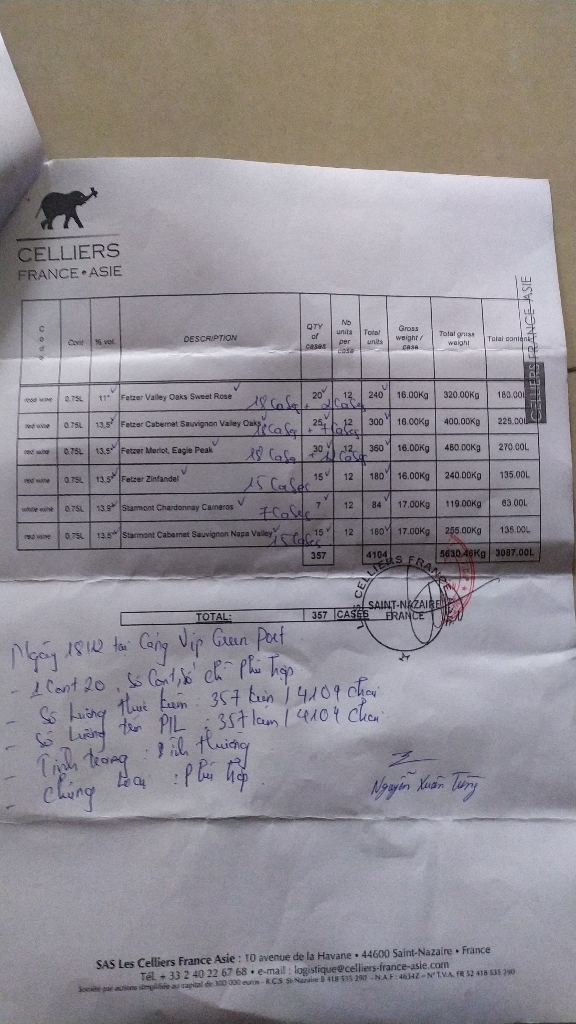 CELLIERS
FRANCE • ASIE
CELLIERS FRANCE-ASIE
Code Cont % vol. DESCRIPTION QTY of cases Nb units per case Total units Gross weight / case Total gross weight Total content
rosé wine 0.75L 11° Fetzer Valley Oaks Sweet Rose 20 12 240 16.00Kg 320.00Kg 180.00L
18 Cases + 2 Cases
red wine 0.75L 13,5° Fetzer Cabernet Sauvignon Valley Oaks 25 12 300 16.00Kg 400.00Kg 225.00L
18 Cases + 7 Cases
red wine 0.75L 13,5° Fetzer Merlot, Eagle Peak 30 12 360 16.00Kg 480.00Kg 270.00L
18 Cases + 12 Cases
red wine 0.75L 13,5° Fetzer Zinfandel 15 12 180 16.00Kg 240.00Kg 135.00L
15 Cases
white wine 0.75L 13,9° Starmont Chardonnay Carneros 7 12 84 17.00Kg 119.00Kg 63.00L
7 Cases
red wine 0.75L 13,5° Starmont Cabernet Sauvignon Napa Valley 15 12 180 17.00Kg 255.00Kg 135.00L
15 Cases
357 4104 5630.46Kg 3087.00L
TOTAL: 357 CASES
LES CELLIERS FRANCE
SAINT-NAZAIRE
FRANCE
Ngày 18/12 tại Cảng Vip Green Port
- 1 Cont 20, số Cont, số chì phù hợp
- Số lượng thực kiểm : 357 kiện / 4104 chai
- Số lượng trên PIL : 357 kiện / 4104 chai
- Tình trạng : Bình thường
- Chủng loại : Phù hợp
Nguyễn Xuân Tùng
SAS Les Celliers France Asie : 10 avenue de la Havane • 44600 Saint-Nazaire • France
Tél. + 33 2 40 22 67 68 • e-mail : logistique@celliers-france-asie.com
Société par actions simplifiée au capital de 300 000 euros - R.C.S. St-Nazaire B 418 535 290 - N.A.F : 4634Z - N° T.V.A. FR 52 418 535 290